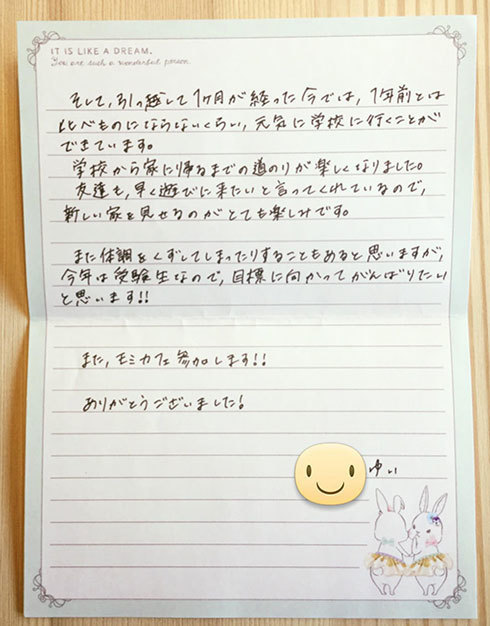 IT IS LIKE A DREAM.
You are such a wonderful person.
そして、引っ越して1ヶ月が経った今では、1年前とは
比べものにならないくらい、元気に学校に行くことが
できています。
学校から家に帰るまでの道のりが楽しくなりました。
友達も、早く遊びに来たいと言ってくれているので、
新しい家を見せるのがとても楽しみです。
また体調をくずしてしまったりすることもあると思いますが、
今年は受験生なので、目標に向かってがんばりたい
と思います!!
また、モミカフェ参加します!!
ありがとうございました!
ゆい